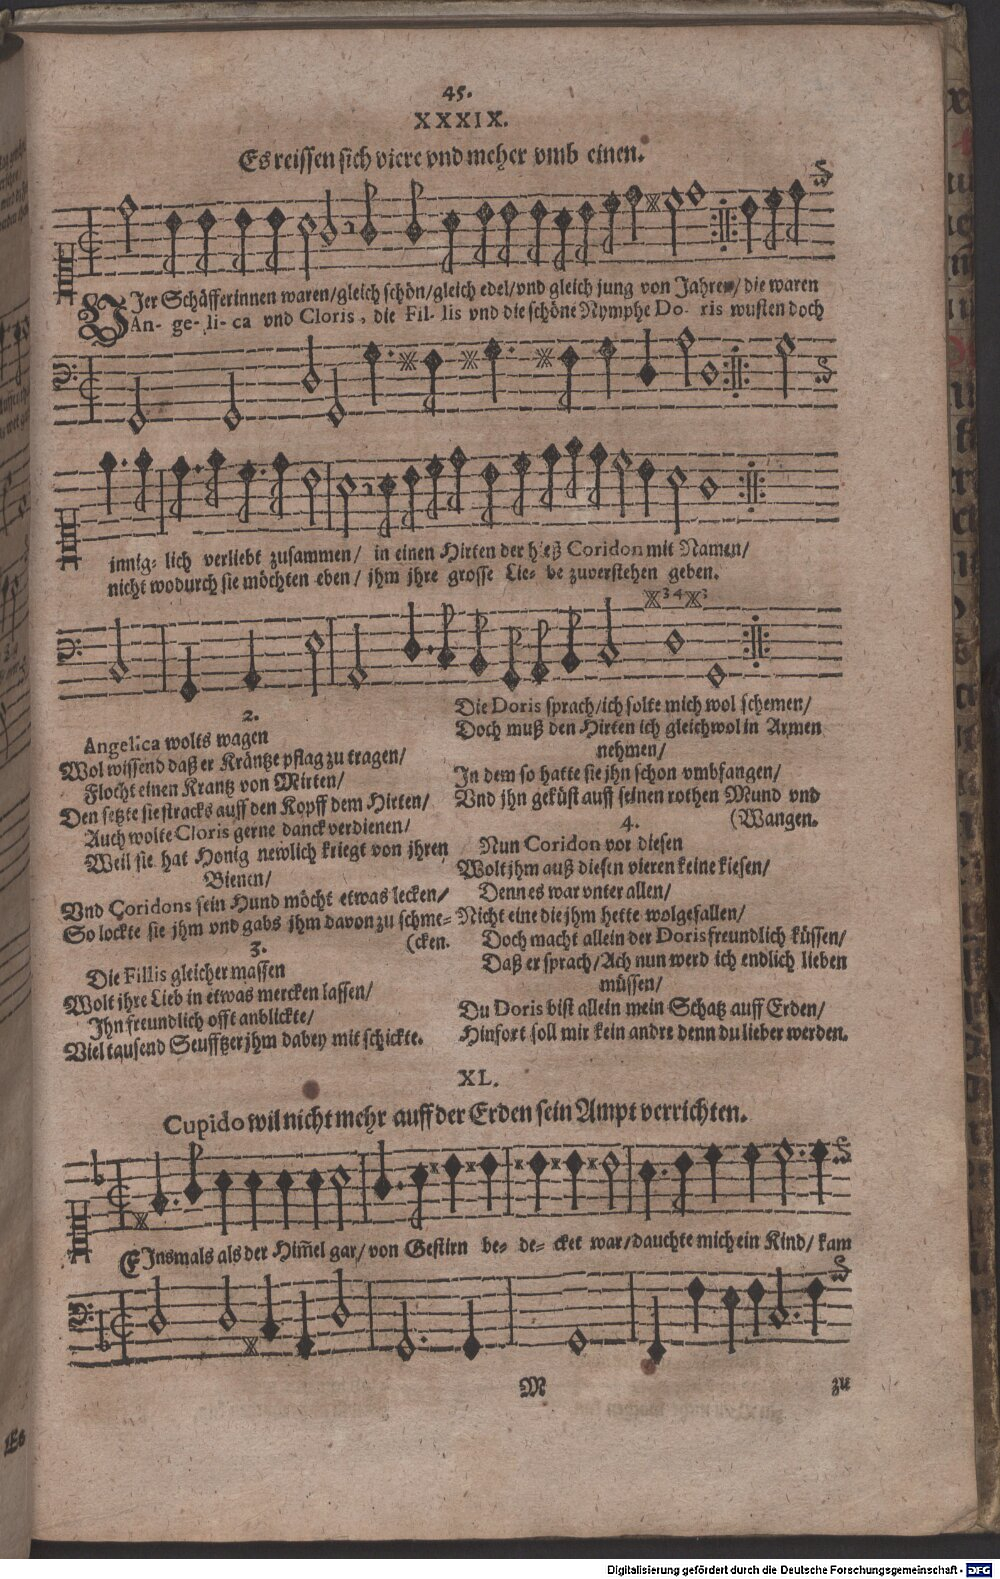 45.
XXXIX.
Es reissen sich viere vnd meher vmb einen.
VJer Schäfferinnen waren/gleich schön/gleich edel/vnd gleich jung von Jahren/ die waren
An- ge- li- ca vnd Cloris, die Fil- lis vnd die schöne Nymphe Do- ris wusten doch
innig- lich verliebt zusammen/ in einen Hirten der hieß Coridon mit Namen/
nicht wodurch sie möchten eben/ jhm jhre grosse Lie- be zuverstehen geben.
3 4 3
2.
Angelica wolts wagen
Wol wissend daß er Kräntze pflag zu tragen/
Flocht einen Krantz von Mirten/
Den setzte sie stracks auff den Kopff dem Hirten/
Auch wolte Cloris gerne danck verdienen/
Weil sie hat Honig newlich kriegt von jhren
Bienen/
Vnd Coridons sein Hund möcht etwas lecken/
So lockte sie jhm vnd gabs jhm davon zu schme-
(cken.
3.
Die Fillis gleicher massen
Wolt jhre Lieb in etwas mercken lassen/
Jhn freundlich offt anblickte/
Viel tausend Seufftzer jhm dabey mit schickte.
Die Doris sprach/ich solte mich wol schemen/
Doch muß den Hirten ich gleichwol in Armen
nehmen/
In dem so hatte sie jhn schon vmbfangen/
Vnd jhn geküst auff seinen rothen Mund vnd
(Wangen.
4.
Nun Coridon vor diesen
Wolt jhm auß diesen vieren keine kiesen/
Denn es war vnter allen/
Nicht eine die jhm hette wolgefallen/
Doch macht allein der Doris freundlich küssen/
Daß er sprach/Ach nun werd ich endlich lieben
müssen/
Du Doris bist allein mein Schatz auff Erden/
Hinfort soll mir kein andre denn du lieber werden.
XL.
Cupido wil nicht mehr auff der Erden sein Ampt verrichten.
EJnsmals als der Him̄el gar/ von Gestirn be- de- cket war/dauchte mich ein Kind/ kam
M
zu
Digitalisierung gefördert durch die Deutsche Forschungsgemeinschaft - DFG